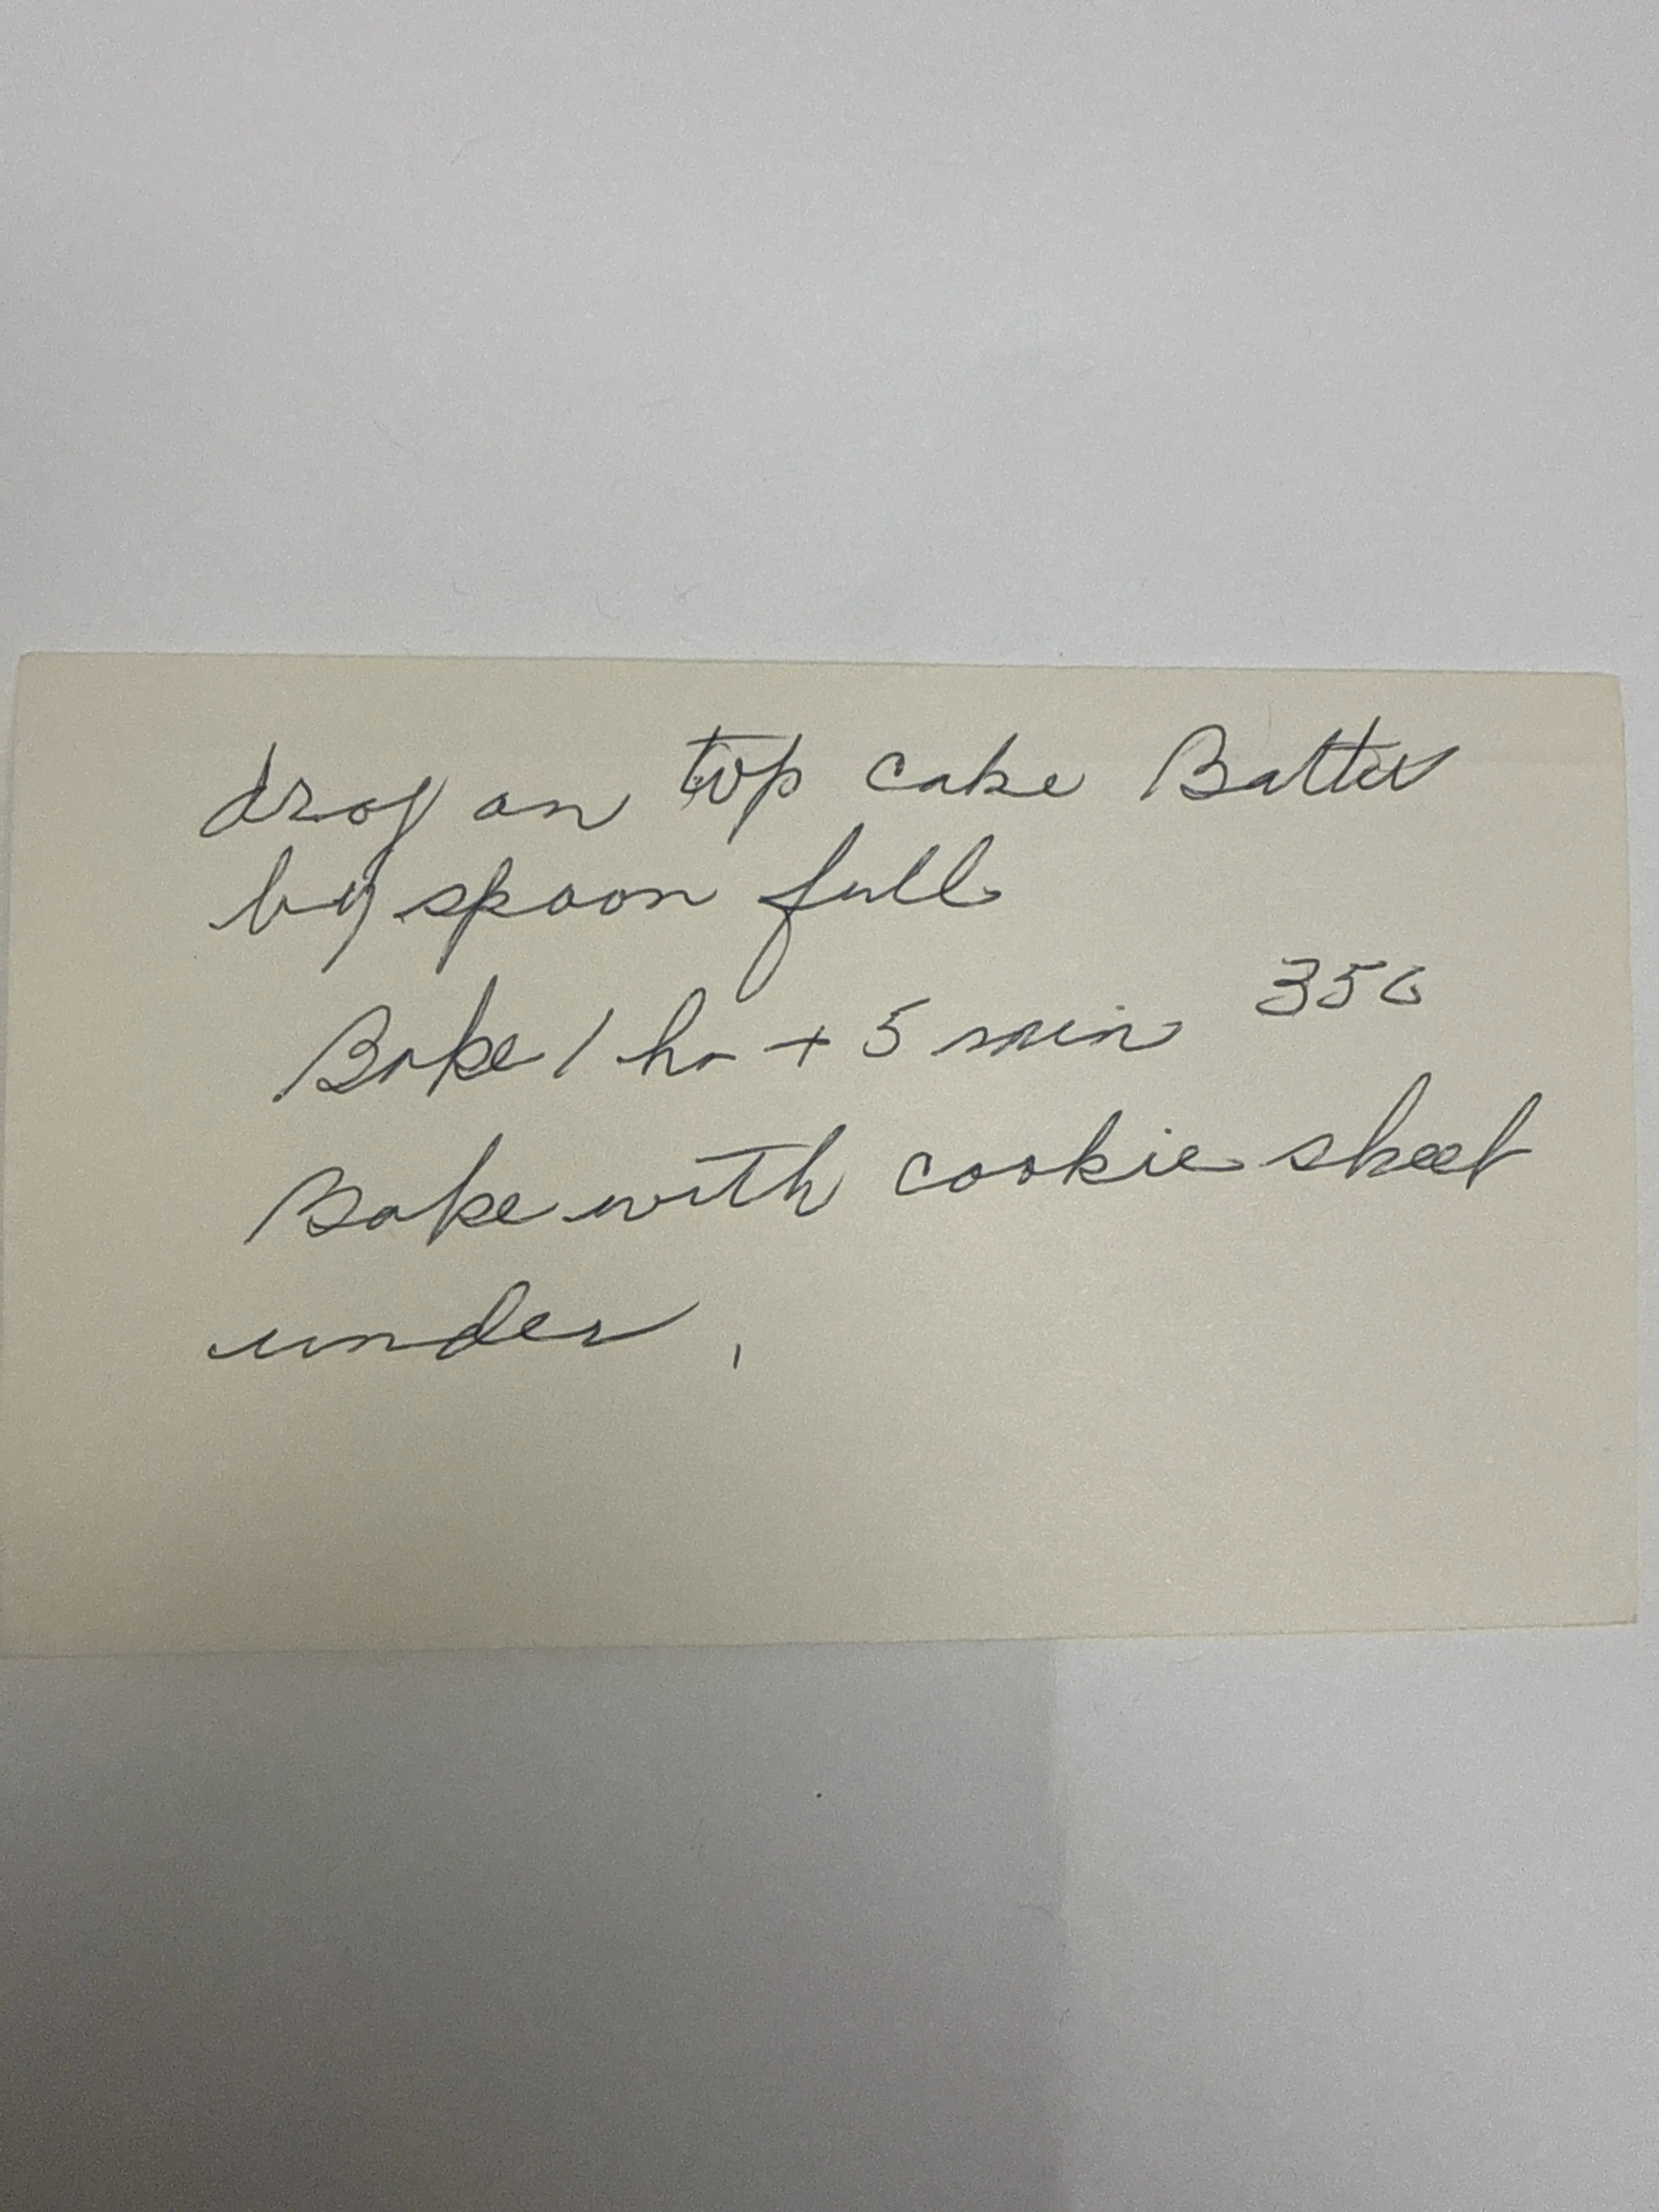 drop on top cake Batter
by spoon full
Bake 1 hr + 5 min 350
Bake with cookie sheet
under,